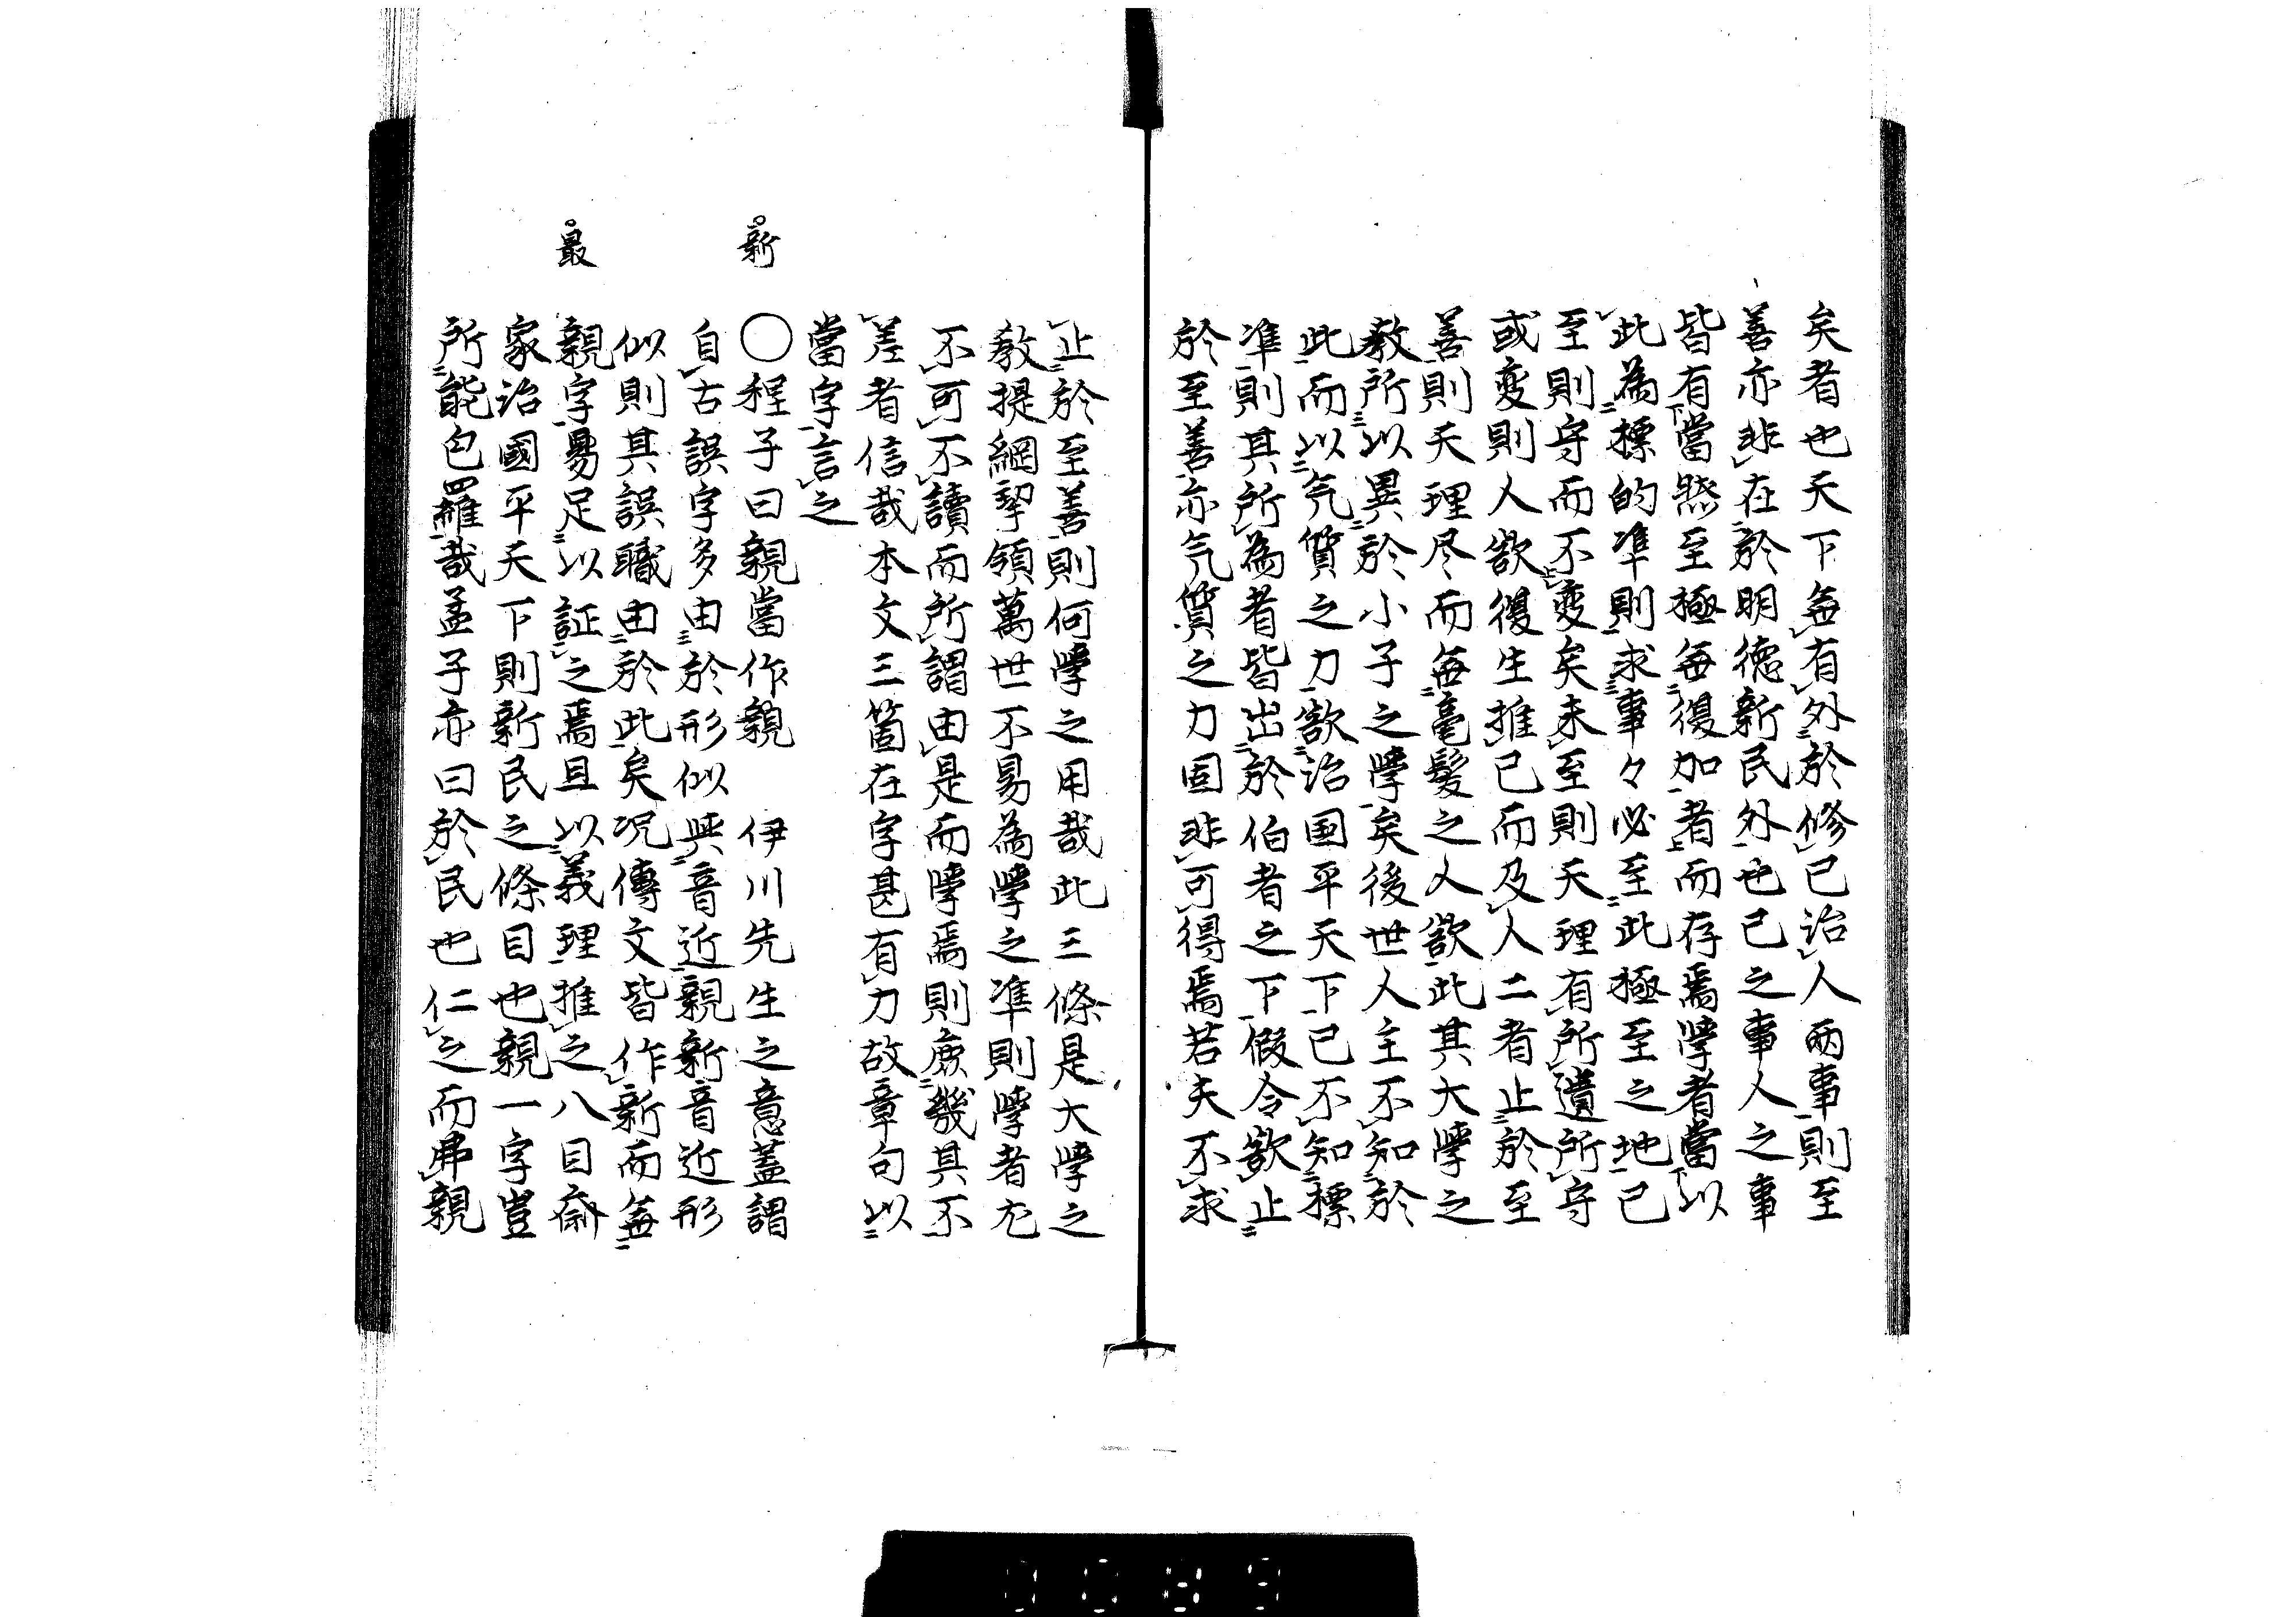 矣者也天下無有外於修己治人兩事則至
善亦非在於明德新民外也己之事人之事
皆有當然至極無復加者而存焉學者當以
此為標的準則求事々必至此極至之地已
至則守而不變矣未至則天理有所遺所守
或變則人欲復生推己而及人二者止於至
善則天理尽而無毫髮之人欲此其大學之
教所以異於小子之學矣後世人主不知於
此而以気質之力欲治国平天下已不知標
準則其所為者皆出於伯者之下假令欲止
於至善亦気質之力固非可得焉若夫不求
止於至善則何學之用哉此三條是大學之
教提綱挈領萬世不易為學之準則學者尤
不可不讀而所謂由是而學焉則庶幾其不
差者信哉本文三箇在字甚有力故章句以
當字言之
新
○程子曰親當作親　伊川先生之意蓋謂
自古誤字多由於形似與音近親新音近形
似則其誤職由於此矣况傳文皆作新而無
最
親字曷足以証之焉且以義理推之八目齊
家治國平天下則新民之條目也親一字豈
所能包羅哉孟子亦曰於民也仁之而弗親